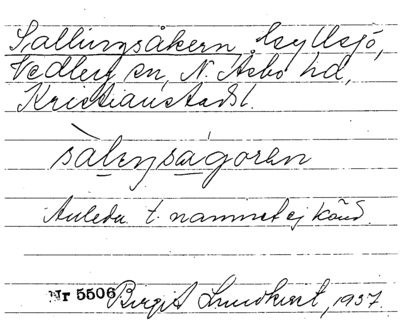 Sallingsåkern, Hylls​jö,
Vedby sn, N. Åsbo hd,
Kristianstads l.
sàleŋságorən
Anledn. t. namnet ej känd.
Nr 5506 Birgit Lundkvist, 1937.